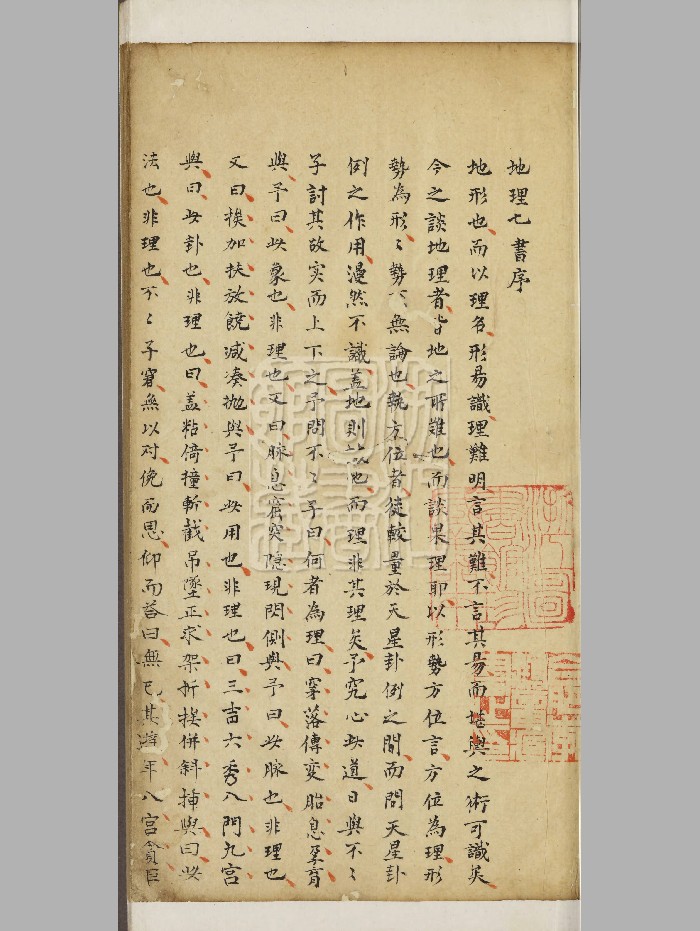 地理七書序
地形也而以理名形易識理難明言其難不言其易而堪輿之術可識矣
今之談地理者皆地之所難也而談果理耶以形勢方位言方位為理形
勢為形〻勢不無論也執方位者徒較量於天星卦例之間而問天星卦
例之作用漫然不識盖地則地而理非其理矣予究心此道日與不〻
子討其故实而上下之予問不〻子曰何者為理曰穿落傳变胎息孕育
與予曰此象也非理也又曰脉息窟突隐現閃側與予曰此脉也非理也
又曰挨加扶放饒減凑抛與予曰此用也非理也曰三吉六秀八門九宫
與曰此卦也非理也曰盖粘倚撞斬截吊墜正求架折挨併斜插與曰此
法也非理也不〻子窘無以对俛而思仰而答曰無已其年八宫貪巨